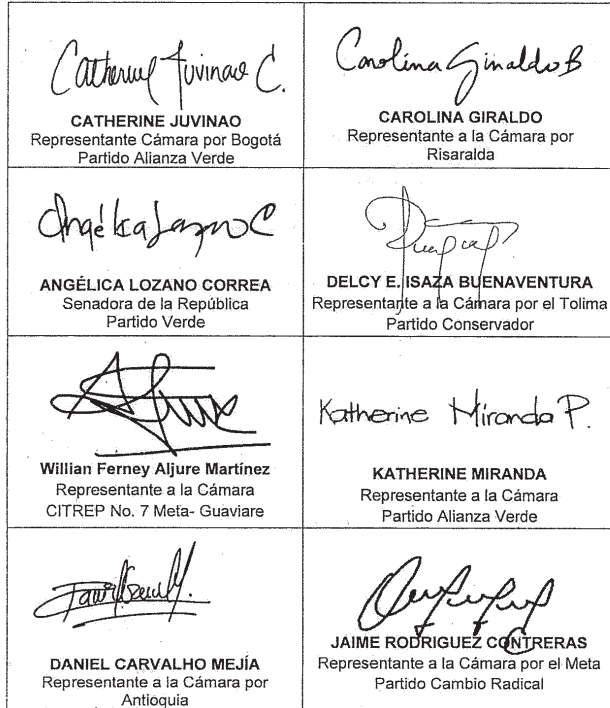 Catherine Juvinao C.
CATHERINE JUVINAO
Representante Cámara por Bogotá
Partido Alianza Verde
Carolina Giraldo B
CAROLINA GIRALDO
Representante a la Cámara por
Risaralda
Angélica Lozano C
ANGÉLICA LOZANO CORREA
Senadora de la República
Partido Verde
DELCY E. ISAZA BUENAVENTURA
Representante a la Cámara por el Tolima
Partido Conservador
Willian Ferney Aljure Martínez
Representante a la Cámara
CITREP No. 7 Meta- Guaviare
Katherine Miranda P.
KATHERINE MIRANDA
Representante a la Cámara
Partido Alianza Verde
DANIEL CARVALHO MEJÍA
Representante a la Cámara por
Antioquia
JAIME RODRIGUEZ CONTRERAS
Representante a la Cámara por el Meta
Partido Cambio Radical